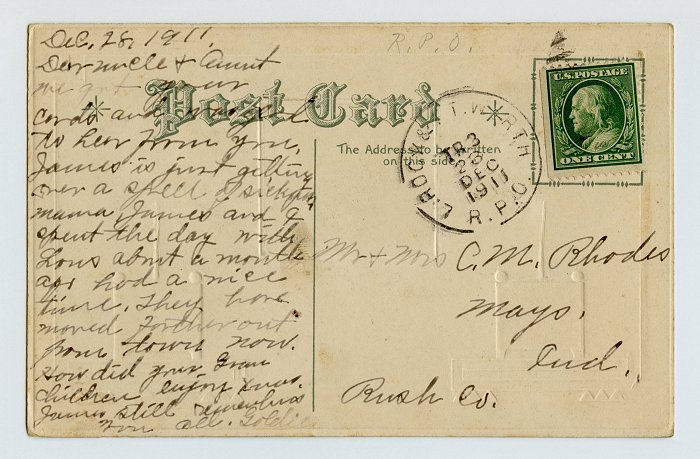 Dec. 28, 1911.
Dear uncle & Aunt
we got your
cards and was glad
to hear from you,
James is just getting
over a spell of sickness
mama, James and I
spent the day with
Lons about a month
ago had a nice
time. They have
moved further out
from town now.
How did your Gran
children enjoy Xmas.
James still remembers
you all. Goldie
R.P.O.
Post Card
The Address to be written
on this side.
L. ROCK & FT. WORTH
TR 3
DEC
1911
R.P.O.
U.S. POSTAGE
ONE CENT
Mr & Mrs C. M. Rhodes
Mays.
Ind.
Rush Co.